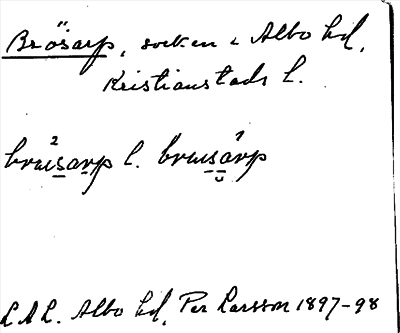 Brösarp, socken i Albo hd,
Kristianstads l.
bruusarp l. bruusarp
L.A.L. Albo hd, Per Larsson 1897-98